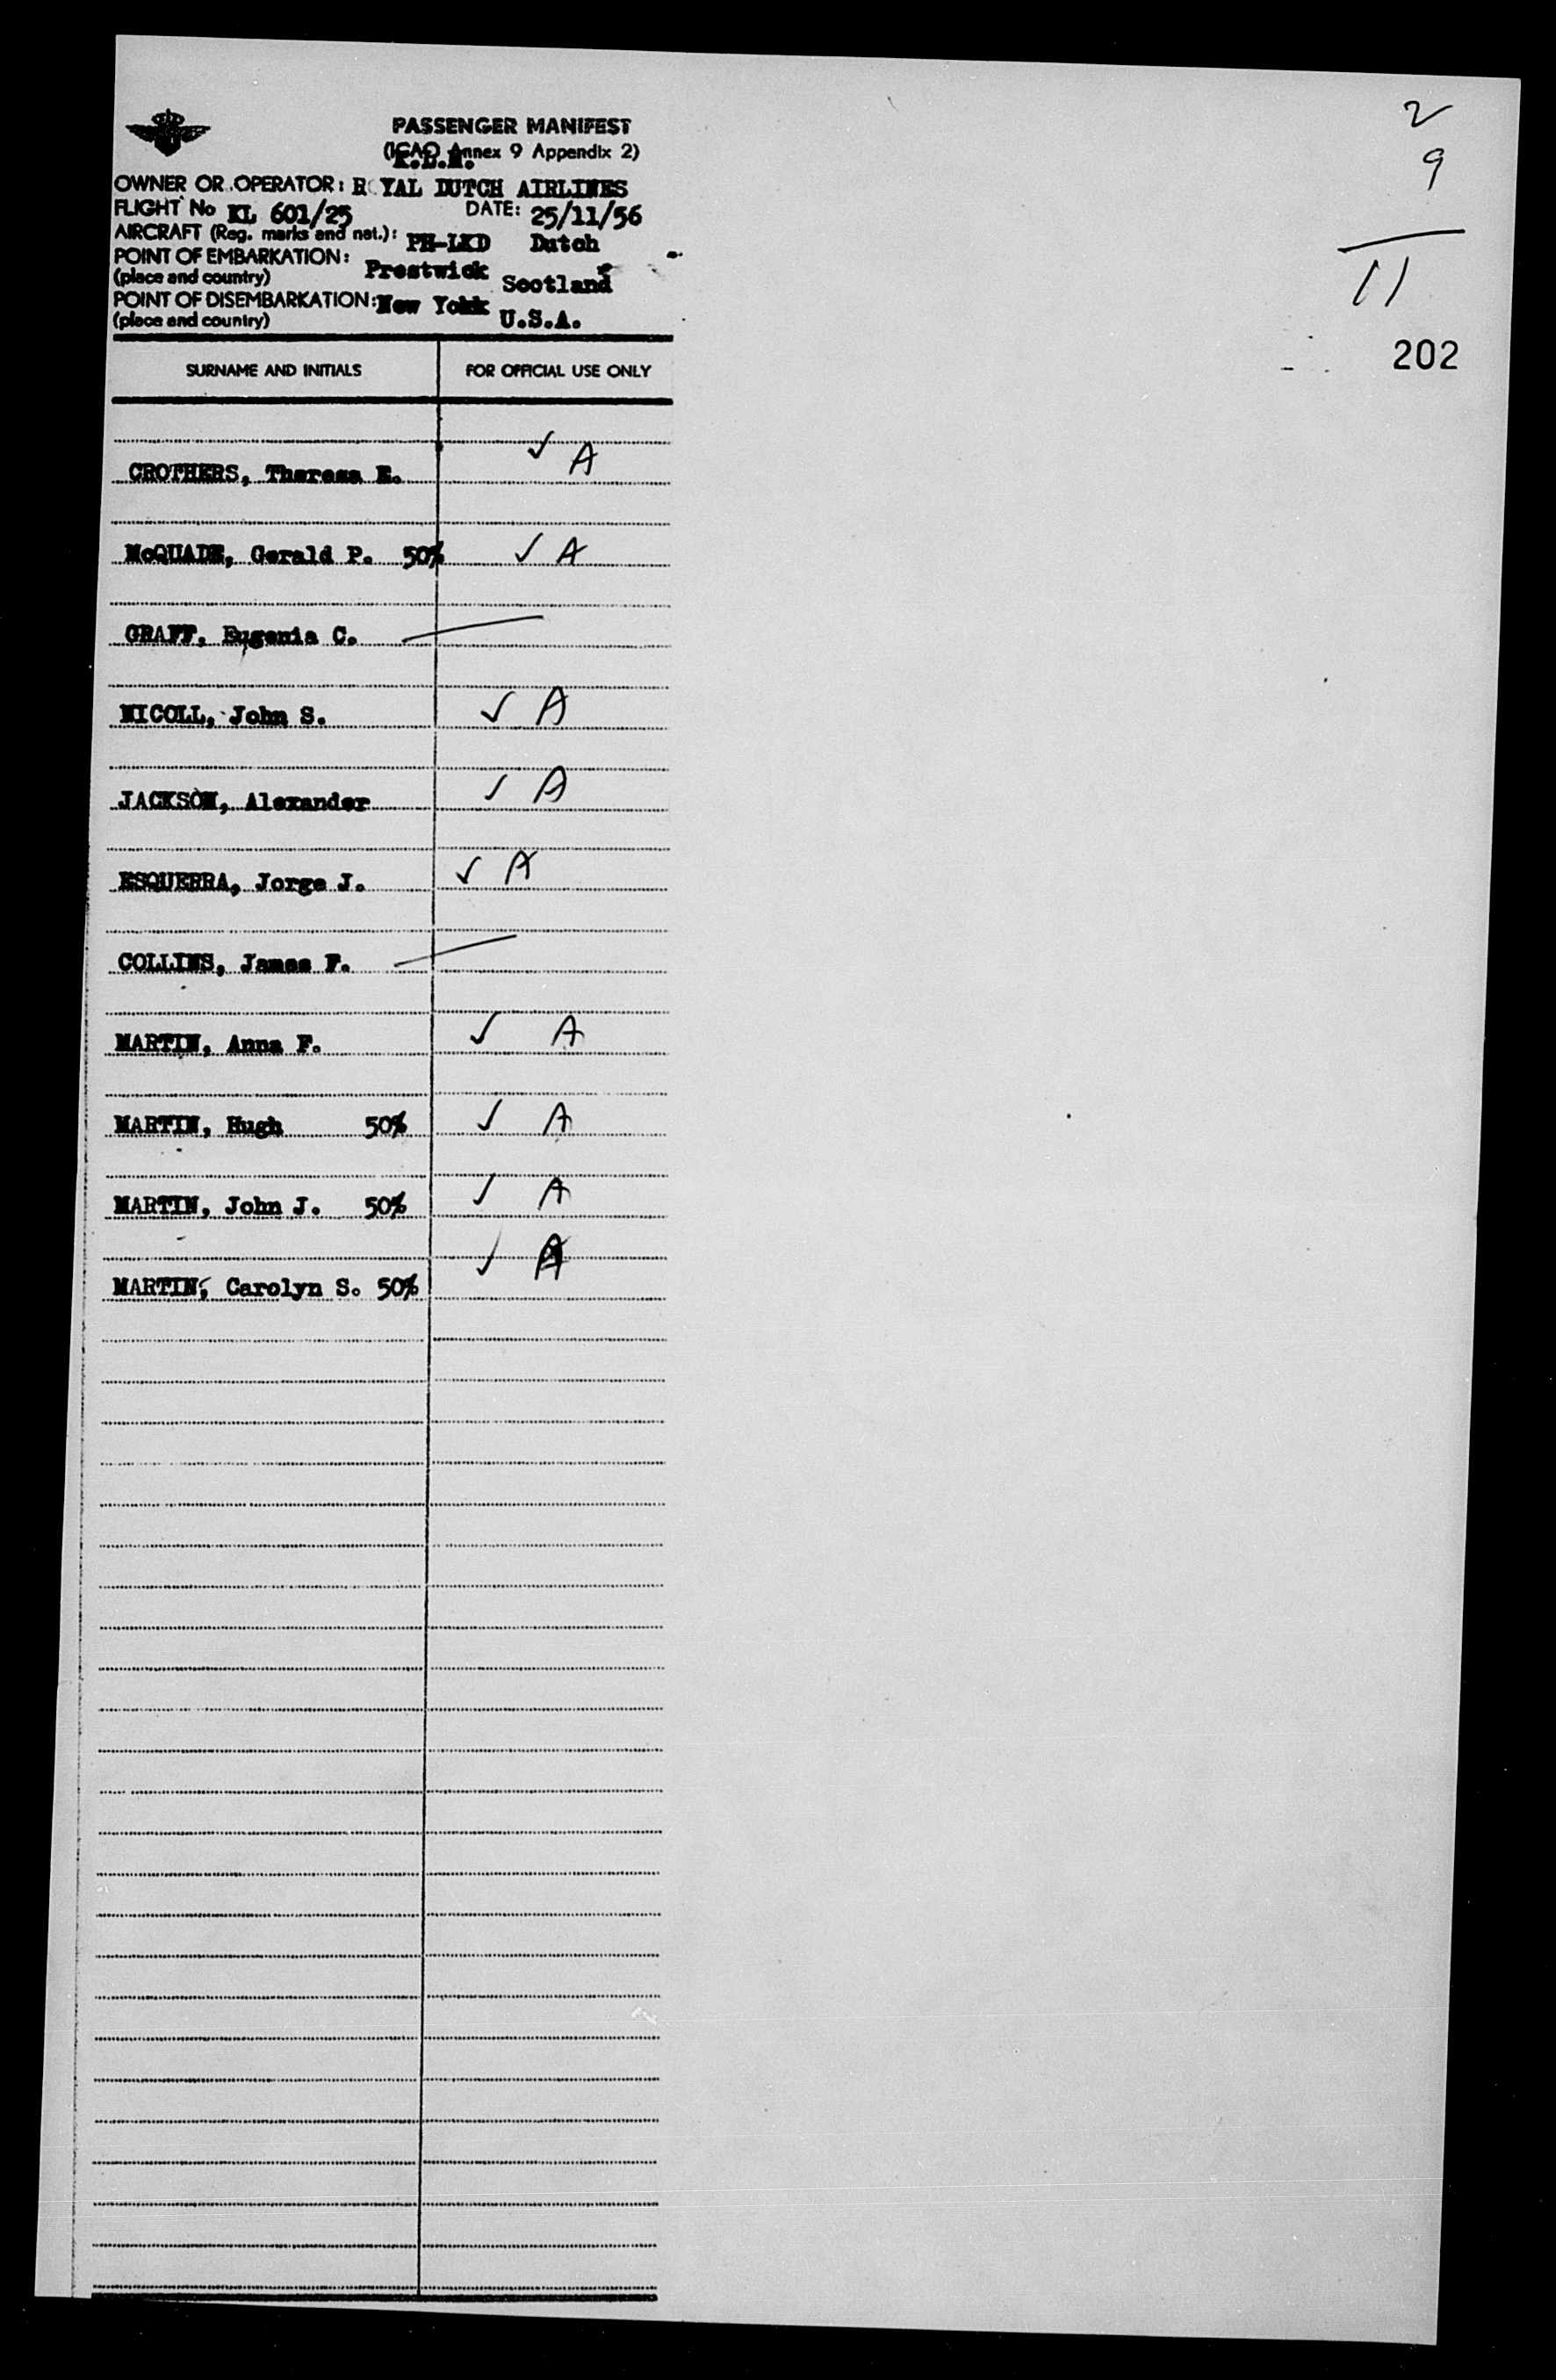 PASSENGER MANIFEST
(ICAO Annex 9 Appendix 2)
K.L.M.
OWNER OR OPERATOR: ROYAL DUTCH AIRLINES
FLIGHT No KL 601/25 DATE: 25/11/56
AIRCRAFT (Reg. marks and nat.): PH-LKD Dutch
POINT OF EMBARKATION: Prestwick Scotland
(place and country)
POINT OF DISEMBARKATION: New Yokk U.S.A.
(place and country)
SURNAME AND INITIALS FOR OFFICIAL USE ONLY
CROTHERS, Theresa E. ✓ A
McQUADE, Gerald P. 50% ✓ A
GRAFF, Eugenia C.
NICOLL, John S. ✓ A
JACKSON, Alexander ✓ A
ESQUERRA, Jorge J. ✓ A
COLLINS, James F.
MARTIN, Anna F. ✓ A
MARTIN, Hugh 50% ✓ A
MARTIN, John J. 50% ✓ A
MARTIN, Carolyn S. 50% ✓ A
2
9
11
202